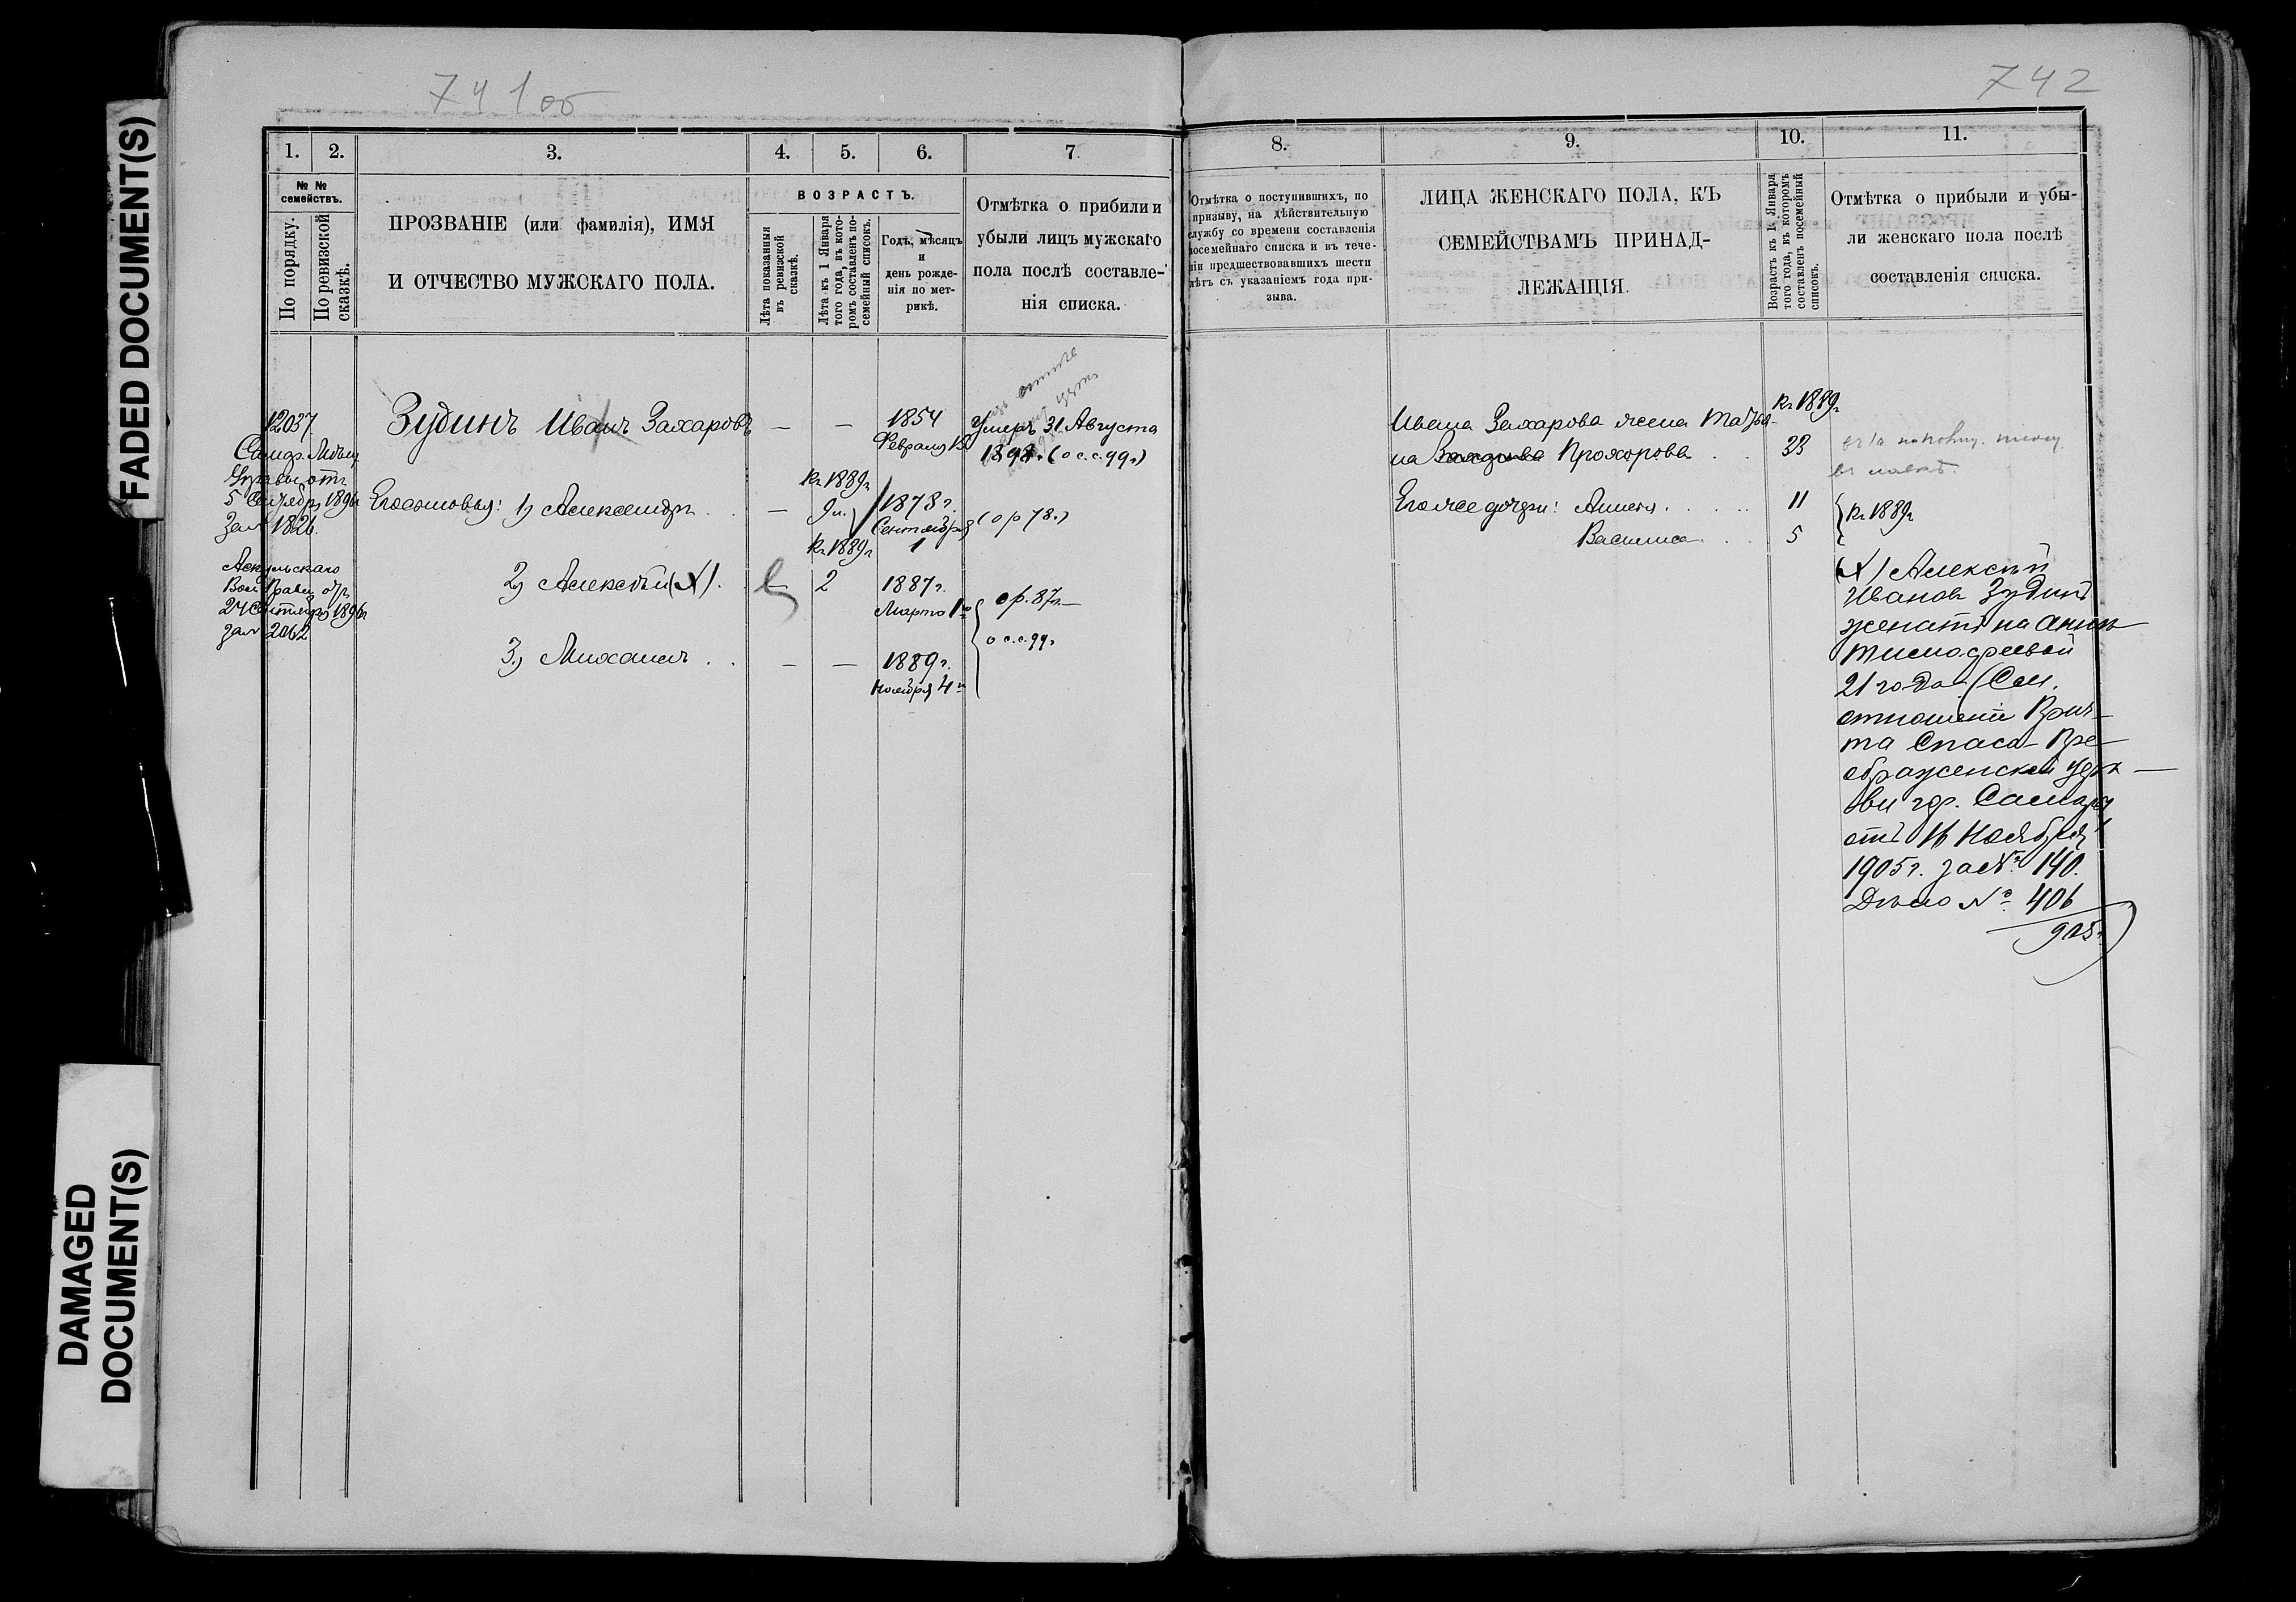 FADED DOCUMENT(S)
DAMAGED
DOCUMENT(S)
741об
1.
2.
3.
4.
5.
6.
7.
№ №
семействъ.
По порядку.
По ревизской
сказкѣ.
ПРОЗВАНІЕ (или фамилія), ИМЯ
И ОТЧЕСТВО МУЖСКАГО ПОЛА.
ВОЗРАСТЪ.
Лѣта показанныя
въ ревизской
сказкѣ.
Лѣта къ 1 Января
того года, въ кото-
ромъ составленъ по-
семейный списокъ.
Годъ, мѣсяцъ
и
день рожде-
нія по мет-
рикѣ.
Отмѣтка о прибыли и
убыли лицъ мужскаго
пола послѣ составле-
нія списка.
12037
Самар. Мѣщ.
Управы отъ
5 Сентября 1896г
за № 1826.
Вол. Правл. отъ
24 Сентября 1896г
за № 2062
Зудинъ Иванъ Захаровъ
— —
1854
Февраля 15
Умеръ 31 Августа
1898г. (о с.с. 99г)
Егосыновья: 1) Александръ . .
—
Къ 1889г
9 л.
1878г.
Сентября
1
(о р 78г.)
2) Алексѣй (X) .
Къ 1889г
2
1887г.
Марта 1го
о р. 87г.—
3.) Михаилъ . .
— —
1889г.
Ноября 4го
о с.с. 99г
742
8.
9.
10.
11.
Отмѣтка о поступившихъ, по
призыву, на дѣйствительную
службу со времени составленія
посемейнаго списка и въ тече-
ніи предшествовавшихъ шести
лѣтъ съ указаніемъ года при-
зыва.
ЛИЦА ЖЕНСКАГО ПОЛА, КЪ
СЕМЕЙСТВАМЪ ПРИНАД-
ЛЕЖАЩІЯ.
Возрастъ къ 1 Января
того года, въ которомъ
составленъ посемейный
списокъ.
Отмѣтка о прибыли и убы-
ли женскаго пола послѣ
составленія списка.
Ивана Захарова жена Матрё-
на Прохорова . .
Къ 1889г
33
Егожедочери: Анна . . . . .
11
Василиса . . .
5
Къ 1889г
(X) Алексѣй
Ивановъ Зудинъ
женатъ на Аннѣ
Тимофеевой
21 года (См.
отношеніе Прич-
та Спасо-Пре-
ображенской церк-
ви гор. Самары
отъ 16 Ноября
1905г. за № 140.
Дѣло № 406
905г.)